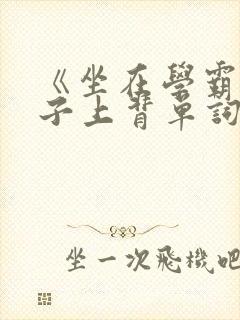 《坐在學霸
子上背單詞
坐一次飛機吧